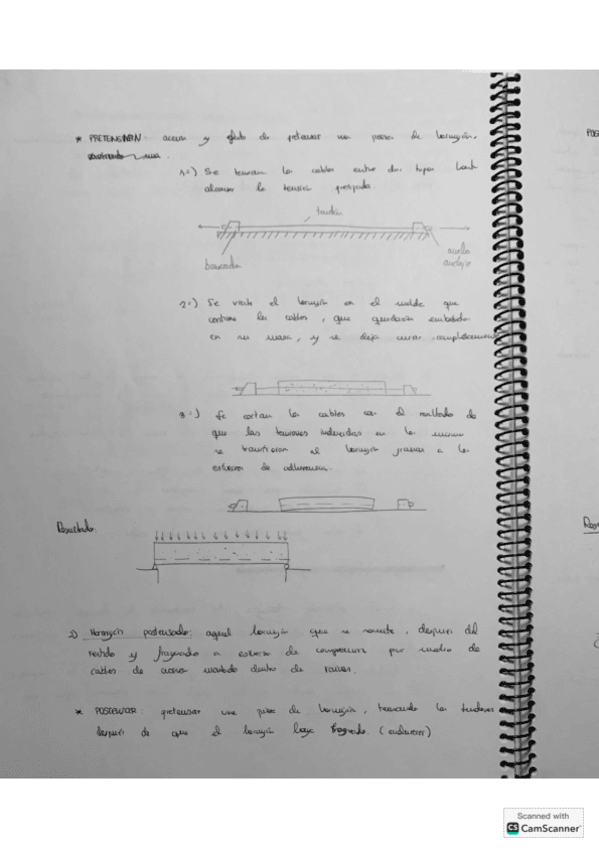 * PRETENSIÓN: acción y efecto de pretensar una pieza de hormigón,
1º) Se tensan los cables entre dos topes hasta
alcanzar la tensión
tendón
bancada
anclaje
2º) Se vierte el hormigón en el molde que
contiene los cables, que quedarán embebidos
en su masa, y se deja curar completamente
3º) Se cortan los cables con el resultado de
que las tensiones inducidas en los
se transfieren al hormigón gracias a los
esfuerzos de adherencia.
Resultado:
2) Hormigón postensado: aquel hormigón que se somete, después del
vertido y fraguado a esfuerzos de compresión por medio de
cables de acero dentro de vainas.
* POSTENSAR: pretensar una pieza de hormigón, tensando los tendones
después de que el hormigón haya fraguado. (endurecer)
Scanned with
CS CamScanner